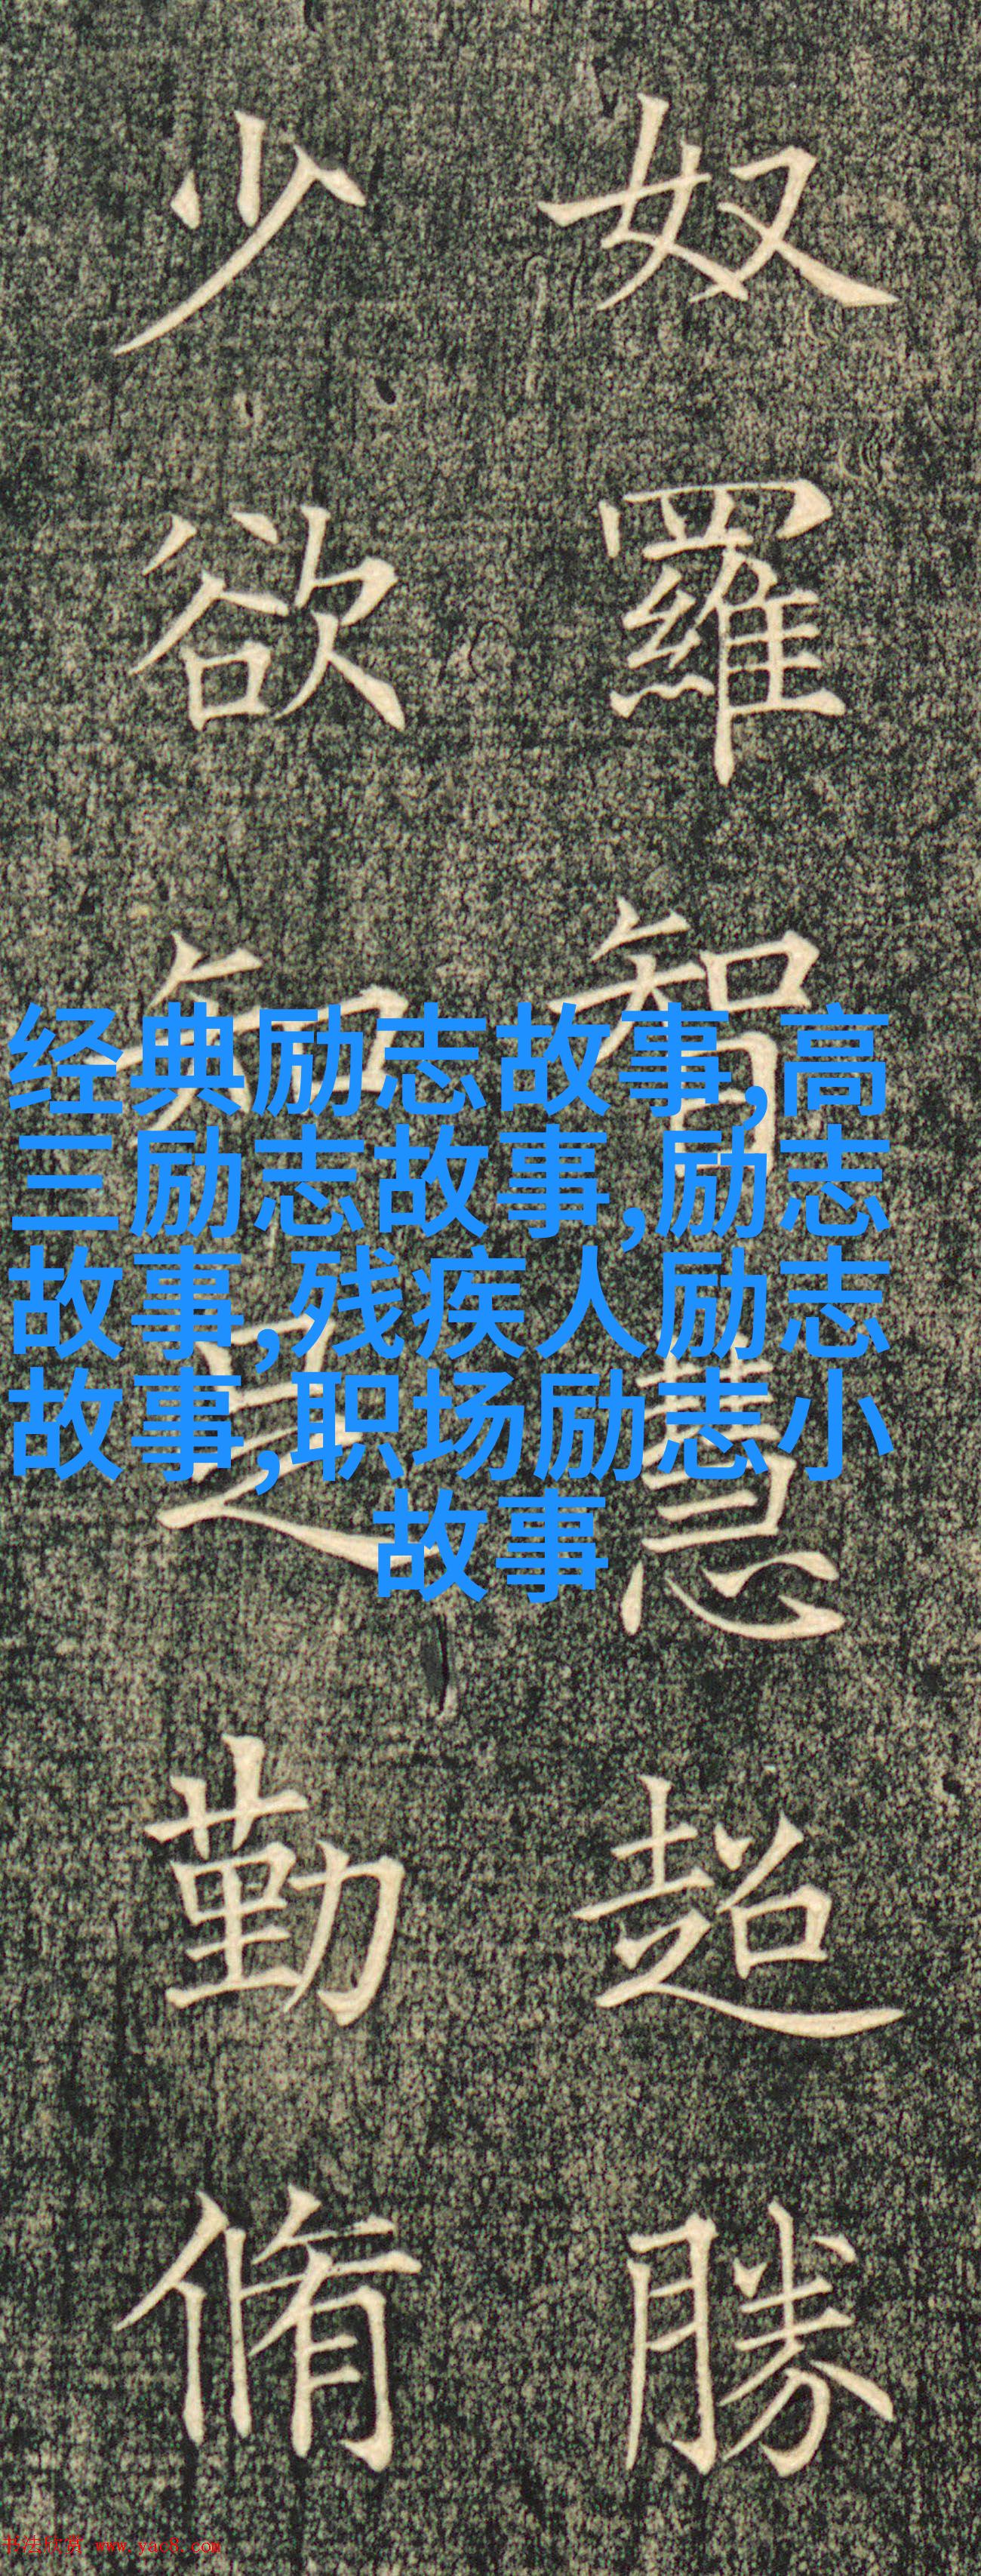 奴羅智慧超勝
少欲知足勤脩
经典励志故事,高
三励志故事,励志
故事,残疾人励志
故事,职场励志小
故事
书法欣赏 www.yac8.com